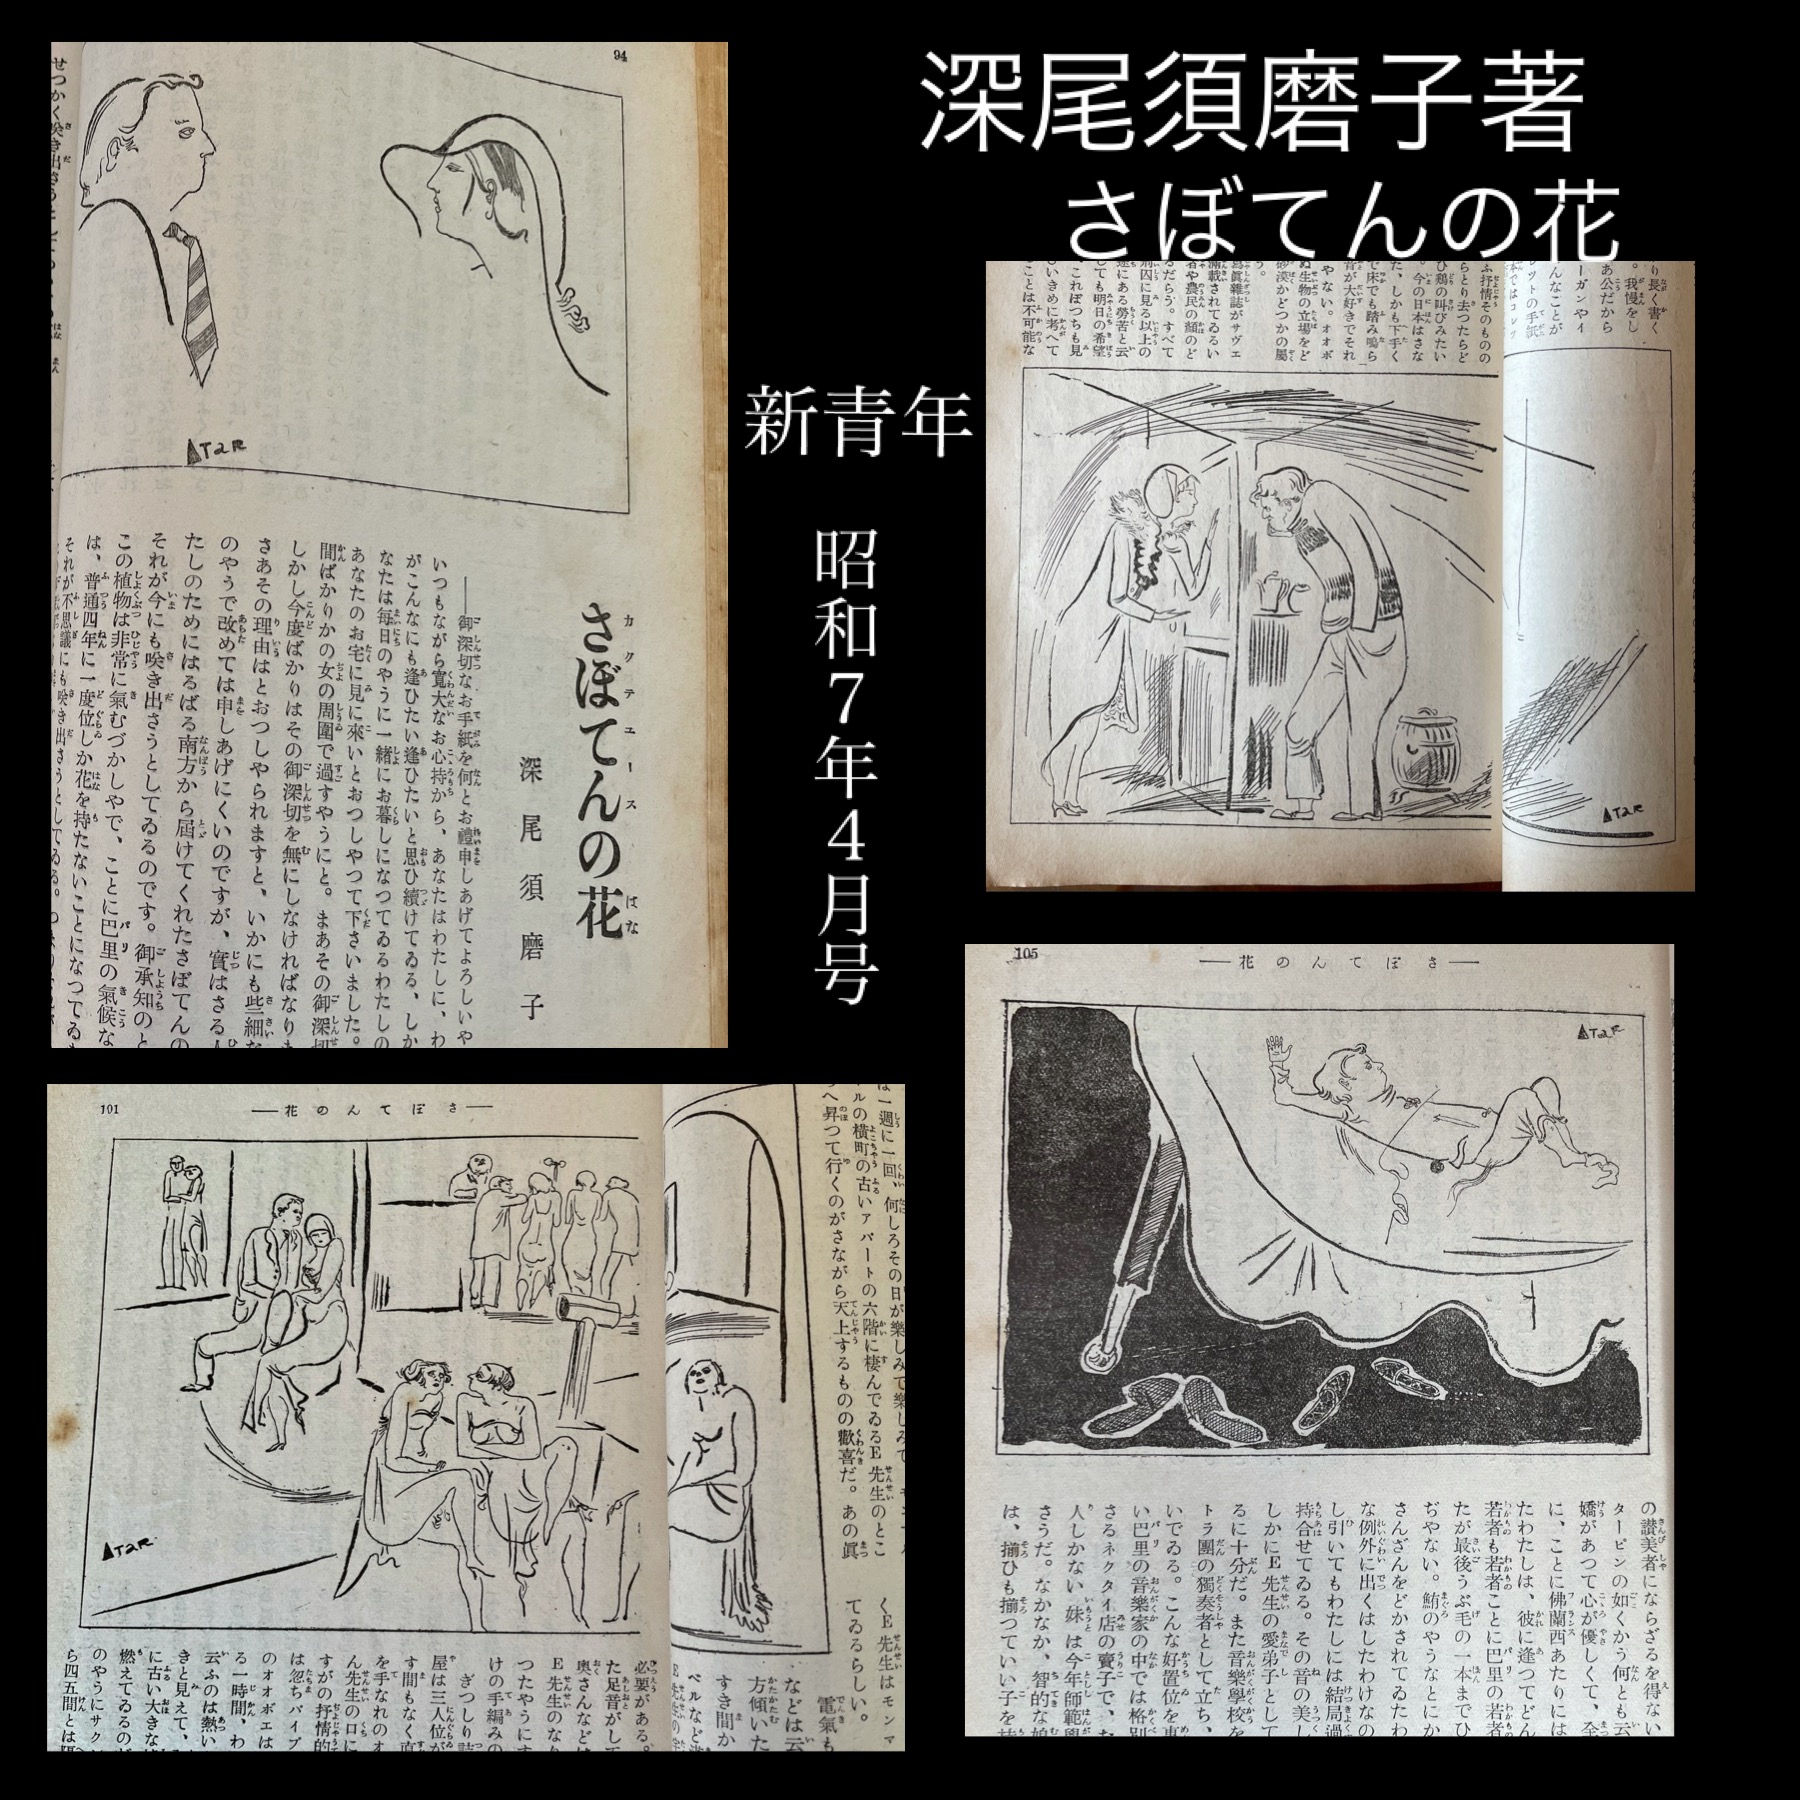 深尾須磨子著
さぼてんの花
新青年
昭和7年4月号
94
ATaR
さぼてんの花
カクテユース
はな
深尾須磨子
――御深切なお手紙を何とお禮申しあげてよろしいや
いつもながら寛大なお心持から、あなたはわたしに、わ
がこんなにも逢ひたい逢ひたいと思ひ續けてゐる、しか
なたは毎日のやうに一緒にお暮しになつてゐるわたしの
あなたのお宅に見に來いとおつしやつて下さいました。
間ばかりかの女の周圍で過すやうにと。まあその御深切
しかし今度ばかりはその御深切を無にしなければなりま
さあその理由はとおつしやられますと、いかにも些細な
のやうで改めては申しあげにくいのですが、實はさる人
たしのためにはるばる南方から屆けてくれたさぼてんの
それが今にも咲き出さうとしてゐるのです。御承知のと
この植物は非常に氣むづかしやで、ことに巴里の氣候な
は、普通四年に一度位しか花を持たないことになつてゐ
それが不思議にも咲き出さうとしてゐる。
せつかく咲き出さう
り長く書く
。我慢をし
あ公だから
ーガンやイ
んなことが
レットの手紙
本ではコレツ
ふ抒情そのものの
らとり去つたらど
ひ鶏の叫びみたい
。今の日本はさな
た、しかも下手く
で床でも踏み鳴ら
音が大好きでそれ
やない。オオボ
ぬ生物の立場をど
砂漠かどつかの屬
う。
寫眞雜誌がサヴエ
滿載されてゐるい
者や農民の顔のど
るだらう。すべて
刑囚に見る以上の
遂にある勞苦と云
しても明日の希望
これぽつちも見
いきめに考へて
ことは不可能な
ATaR
101
――花のんてぼさ――
ATaR
は一週に一回、何しろその日が樂しみで樂しみで
ルの横町の古いアパートの六階に棲んでゐるE先生のとこ
へ昇つて行くのがさながら天上するものの歡喜だ。あの眞
くE先生はモンマ
てゐるらしい。
電氣も
などは云
方傾いた
すき間か
ベルなど
必要がある。
た足音がして
奥さんなどは
E先生のなり
つたやうにす
けの手編みの
ぎつしり詰
屋は三人位が
す間もなく直
を手なれのオ
ん先生の口に
すがの抒情的
は忽ちパイプ
のオオボエは
る一時間、わ
云ふのは熱い
きと見えて、
に古い大きな
燃えてゐるのが
のやうにサク
ら四五間とは隔
105
――花のんてぼさ――
ATaR
の讃美者にならざるを得ない
タービンの如くかう何とも云
嬌があつて心が優しくて、全
に、ことに佛蘭西あたりには
たわたしは、彼に逢つてどん
若者も若者ことに巴里の若者
たが最後うぶ毛の一本までひ
ぢやない。鮪のやうなとにか
さんざんをどかされてゐたわ
な例外に出くはしたわけなの
し引いてもわたしには結局過
持合せてゐる。その音の美し
しかにE先生の愛弟子として
るに十分だ。また音樂學校を
トラ團の獨奏者として立ち、
いでゐる。こんな好置位を東
い巴里の音樂家の中では格別
さるネクタイ店の賣子で、た
人しかない妹は今年師範學
さうだ。なかなか、智的な娘
は、揃ひも揃つていい子を持